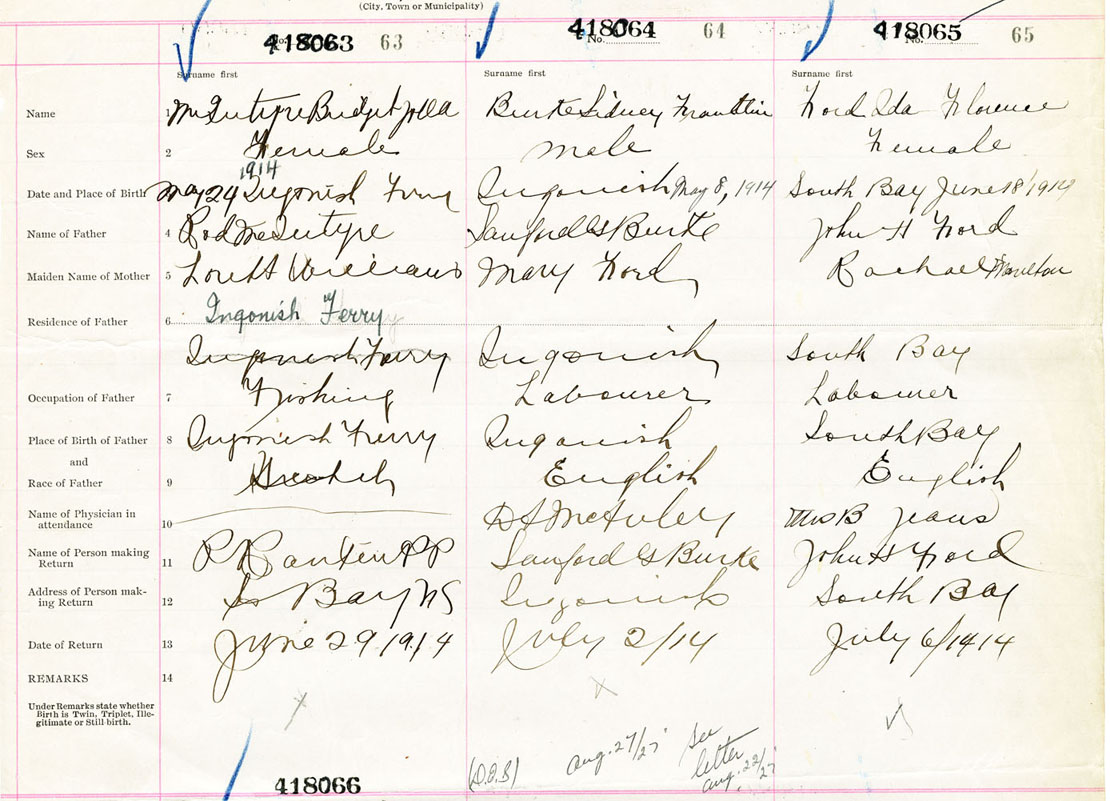 (City, Town or Municipality)
418063 63
418064 64
418065 65
No.
No.
Surname first
Surname first
Surname first
Name 1 McIntyre Bridget Burke Sidney Franklin Ford Ida Florence
Sex 2 Female male Female
1914
Date and Place of Birth May 24 Ingonish Ferry Ingonish May 8, 1914 South Bay June 18 1914
Name of Father 4 Rod McIntyre Sanford G Burke John H Ford
Maiden Name of Mother 5 Williams Mary Ford Rachael
Residence of Father 6 Ingonish Ferry
Ingonish Ferry Ingonish South Bay
Occupation of Father 7 Fishing Labourer Labourer
Place of Birth of Father 8 Ingonish Ferry Ingonish South Bay
and
Race of Father 9 Scotch English English
Name of Physician in
attendance 10 Mrs B Jeans
Name of Person making
Return 11 PP Sanford G Burke John H Ford
Address of Person mak-
ing Return 12 So Bay NS Ingonish South Bay
Date of Return 13 June 29 1914 July 2/14 July 6/1914
REMARKS 14
Under Remarks state whether
Birth is Twin, Triplet, Ille-
gitimate or Still-birth.
Aug. 27/27 See
letter
Aug. 22/27
418066